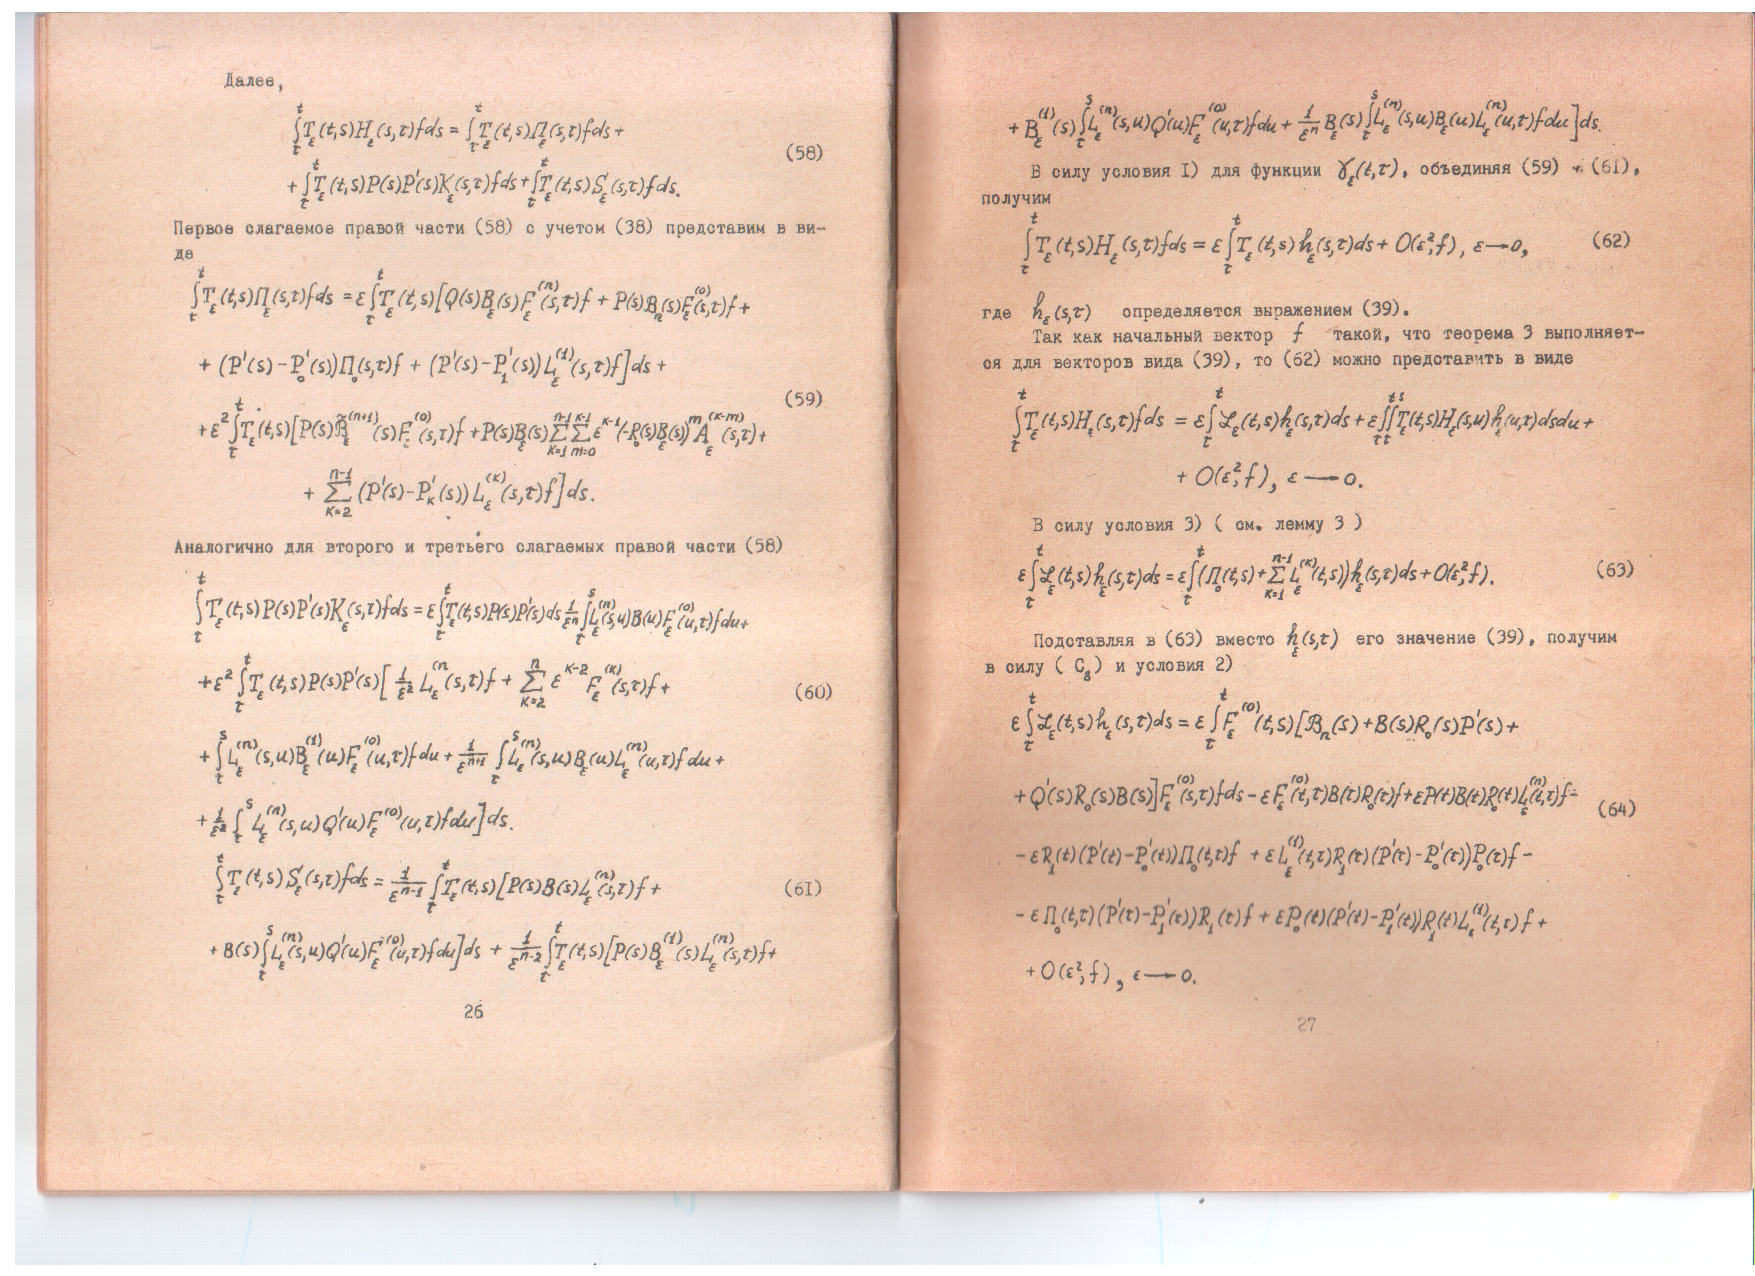 Далее,
∫_τ^t T_ε(t,s)H_ε(s,τ)fds = ∫_τ^t T_ε(t,s)Π_ε(s,τ)fds +
(58)
+ ∫_τ^t T_ε(t,s)P(s)P'(s)K_ε(s,τ)fds + ∫_τ^t T_ε(t,s)S_ε(s,τ)fds.
Первое слагаемое правой части (58) с учетом (38) представим в ви-
де
∫_τ^t T_ε(t,s)Π_ε(s,τ)fds = ε∫_τ^t T_ε(t,s)[Q(s)B_ε(s)F_ε^(n)(s,τ)f + P(s)B_n(s)F_ε^(0)(s,τ)f +
+ (P'(s) - P_0'(s))Π_0(s,τ)f + (P'(s) - P_1'(s))L_ε^(1)(s,τ)f]ds +
(59)
+ ε²∫_τ^t T_ε(t,s)[P(s)B̃_ε^(n+1)(s)F_ε^(0)(s,τ)f + P(s)B_ε(s) Σ_{K=1}^{n-1} Σ_{m=0}^{K-1} ε^{K-1}(-R_0(s)B_ε(s))^m A_ε^(K-m)(s,τ) +
+ Σ_{K=2}^{n-1} (P'(s) - P_K'(s))L_ε^(K)(s,τ)f]ds.
Аналогично для второго и третьего слагаемых правой части (58)
∫_τ^t T_ε(t,s)P(s)P'(s)K_ε(s,τ)fds = ε∫_τ^t T_ε(t,s)P(s)P'(s)ds 1/ε^n ∫_τ^s L_ε^(n)(s,u)B(u)F_ε^(0)(u,τ)fdu +
+ ε²∫_τ^t T_ε(t,s)P(s)P'(s)[1/ε² L_ε^(n)(s,τ)f + Σ_{K=2}^n ε^{K-2}F_ε^(K)(s,τ)f +
(60)
+ ∫_τ^s L_ε^(n)(s,u)B_ε^(1)(u)F_ε^(0)(u,τ)fdu + 1/ε^{n+1} ∫_τ^s L_ε^(n)(s,u)B_ε(u)L_ε^(n)(u,τ)fdu +
+ 1/ε² ∫_τ^s L_ε^(n)(s,u)Q'(u)F_ε^(0)(u,τ)fdu]ds.
∫_τ^t T_ε(t,s)S_ε(s,τ)fds = 1/ε^{n-1} ∫_τ^t T_ε(t,s)[P(s)B(s)L_ε^(n)(s,τ)f +
(61)
+ B(s)∫_τ^s L_ε^(n)(s,u)Q'(u)F_ε^(0)(u,τ)fdu]ds + 1/ε^{n-2} ∫_τ^t T_ε(t,s)[P(s)B_ε^(1)(s)L_ε^(n)(s,τ)f +
26
+ B_ε^(1)(s)∫_τ^s L_ε^(n)(s,u)Q'(u)F_ε^(0)(u,τ)fdu + 1/ε^n B_ε(s)∫_τ^s L_ε^(n)(s,u)B_ε(u)L_ε^(n)(u,τ)fdu]ds.
В силу условия I) для функции γ_ε(t,τ), объединяя (59) ÷ (61),
получим
∫_τ^t T_ε(t,s)H_ε(s,τ)fds = ε∫_τ^t T_ε(t,s)h_ε(s,τ)ds + O(ε²,f), ε→0, (62)
где h_ε(s,τ) определяется выражением (39).
Так как начальный вектор f такой, что теорема 3 выполняет-
ся для векторов вида (39), то (62) можно представить в виде
∫_τ^t T_ε(t,s)H_ε(s,τ)fds = ε∫_τ^t ℒ_ε(t,s)h_ε(s,τ)ds + ε∫_τ^t∫_τ^s T_ε(t,s)H_ε(s,u)h_ε(u,τ)dsdu +
+ O(ε²,f), ε→0.
В силу условия 3) ( см. лемму 3 )
ε∫_τ^t ℒ_ε(t,s)h_ε(s,τ)ds = ε∫_τ^t (Π_0(t,s) + Σ_{K=1}^{n-1} L_ε^(K)(t,s))h_ε(s,τ)ds + O(ε²,f). (63)
Подставляя в (63) вместо h_ε(s,τ) его значение (39), получим
в силу ( C_8) и условия 2)
ε∫_τ^t ℒ_ε(t,s)h_ε(s,τ)ds = ε∫_τ^t F_ε^(0)(t,s)[B_n(s) + B(s)R_0(s)P'(s) +
+ Q'(s)R_0(s)B(s)]F_ε^(0)(s,τ)fds - εF_ε^(0)(t,τ)B(τ)R_0(τ)f + εP(t)B(t)R_0(t)L_ε^(n)(t,τ)f -
(64)
- εR_1(t)(P'(t) - P_0'(t))Π_0(t,τ)f + εL_ε^(1)(t,τ)R_1(τ)(P'(τ) - P_0'(τ))P_0(τ)f -
- εΠ_0(t,τ)(P'(τ) - P_1'(τ))R_1(τ)f + εP_0(t)(P'(t) - P_1'(t))R_1(t)L_ε^(1)(t,τ)f +
+ O(ε²,f), ε→0.
27